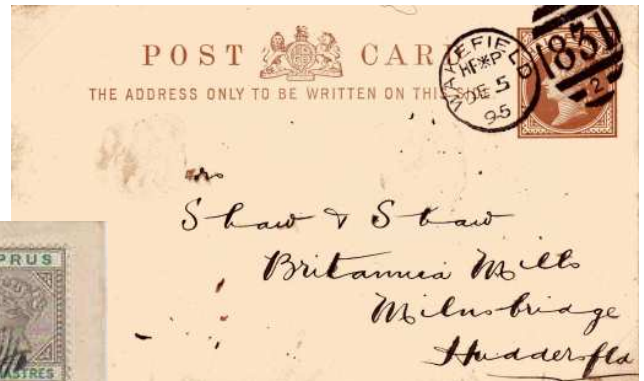 POST CARD
THE ADDRESS ONLY TO BE WRITTEN ON THIS
WAKEFIELD
HF*P
DE 5
95
831
2
Shaw & Shaw
Britannia Mills
Milnsbridge
Huddersfld
PRUS
IASTRES